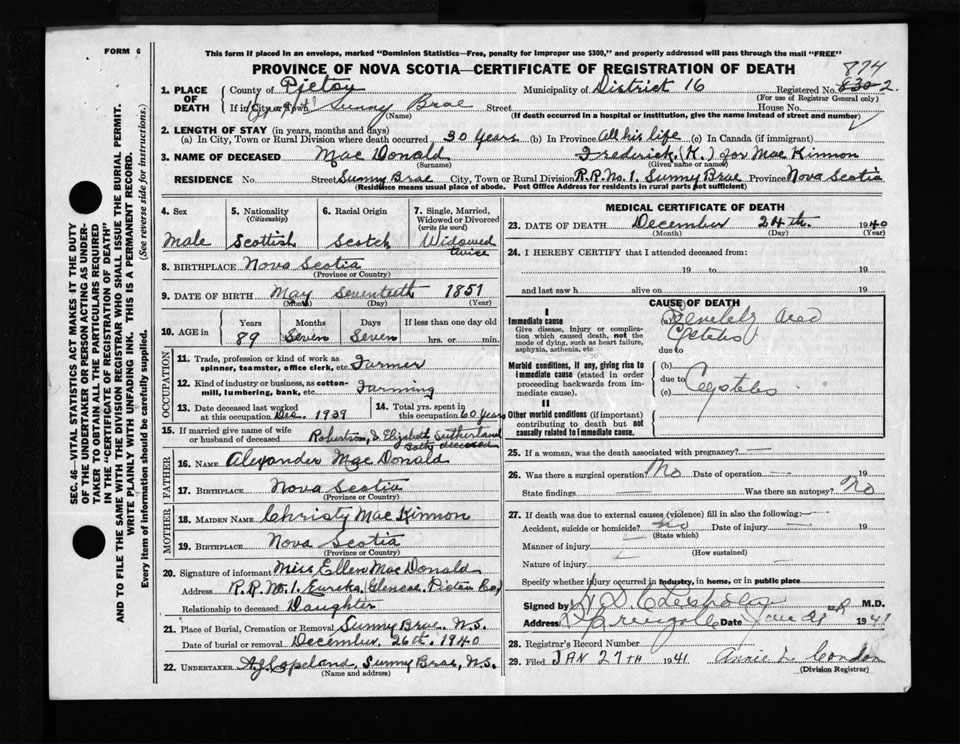 FORM 6
This form if placed in an envelope, marked "Dominion Statistics—Free, penalty for improper use $300," and properly addressed will pass through the mail "FREE"
PROVINCE OF NOVA SCOTIA—CERTIFICATE OF REGISTRATION OF DEATH
874
1. PLACE OF DEATH
County of Pictou Municipality of District 16 Registered No. 830-2.
(For use of Registrar General only)
If in City or Town Sunny Brae Street House No.
(Name) (If death occurred in a hospital or institution, give its name instead of street and number)
2. LENGTH OF STAY (in years, months and days)
(a) In City, Town or Rural Division where death occurred 30 Years (b) In Province All his life (c) In Canada (if immigrant)
3. NAME OF DECEASED Mac Donald Frederick (K.) for Mac Kinnon
(Surname) (Given name or names)
RESIDENCE No Street Sunny Brae City, Town or Rural Division R.R. No. 1. Sunny Brae Province Nova Scotia
(Residence means usual place of abode. Post Office Address for residents in rural parts not sufficient)
4. Sex
Male
5. Nationality
(Citizenship)
Scottish
6. Racial Origin
Scotch
7. Single, Married, Widowed or Divorced
(write the word)
Widowed
twice
8. BIRTHPLACE Nova Scotia
(Province or Country)
9. DATE OF BIRTH May Seventeeth 1851
(Month) (Day) (Year)
10. AGE in
Years Months Days If less than one day old
89 Seven Seven hrs. or min.
OCCUPATION
11. Trade, profession or kind of work as spinner, teamster, office clerk, etc. Farmer
12. Kind of industry or business, as cotton-mill, lumbering, bank, etc. Farming
13. Date deceased last worked at this occupation Dec. 1939
14. Total yrs. spent in this occupation 60 Years
15. If married give name of wife or husband of deceased Robertson, & Elizabeth Sutherland
Both deceased
FATHER
16. NAME Alexander Mac Donald
17. BIRTHPLACE Nova Scotia
(Province or Country)
MOTHER
18. MAIDEN NAME Christy Mac Kinnon
19. BIRTHPLACE Nova Scotia
(Province or Country)
20. Signature of informant Miss Ellen Mac Donald
Address R.R. No. 1. Eureka, Glencoe, Pictou Co.
Relationship to deceased Daughter
21. Place of Burial, Cremation or Removal Sunny Brae. N.S.
Date of burial or removal December, 26th. 1940
22. UNDERTAKER A.J. Copeland, Sunny Brae, N.S.
(Name and address)
MEDICAL CERTIFICATE OF DEATH
23. DATE OF DEATH December 24th. 1940
(Month) (Day) (Year)
24. I HEREBY CERTIFY that I attended deceased from:
19 to 19
and last saw h alive on 19
CAUSE OF DEATH
I
Immediate cause
Give disease, injury or complication which caused death, not the mode of dying, such as heart failure, asphyxia, asthenia, etc
(a)
due to
Morbid conditions, if any, giving rise to immediate cause (stated in order proceeding backwards from immediate cause).
(b)
due to
(c)
II
Other morbid conditions (if important) contributing to death but not causally related to immediate cause.
25. If a woman, was the death associated with pregnancy?
26. Was there a surgical operation? No Date of operation 19
State findings Was there an autopsy? No
27. If death was due to external causes (violence) fill in also the following:
Accident, suicide or homicide? no Date of injury 19
(State which)
Manner of injury
(How sustained)
Nature of injury
Specify whether injury occurred in industry, in home, or in public place
Signed by M.D.
Address Date Jan 1941
28. Registrar's Record Number
29. Filed JAN 27TH 1941 Annie
(Division Registrar)
SEC. 46—VITAL STATISTICS ACT MAKES IT THE DUTY
OF THE UNDERTAKER OR PERSON ACTING AS UNDER-
TAKER TO OBTAIN ALL THE PARTICULARS REQUIRED
IN THE "CERTIFICATE OF REGISTRATION OF DEATH"
AND TO FILE THE SAME WITH THE DIVISION REGISTRAR WHO SHALL ISSUE THE BURIAL PERMIT.
WRITE PLAINLY WITH UNFADING INK. THIS IS A PERMANENT RECORD.
Every item of information should be carefully supplied. (See reverse side for instructions.)